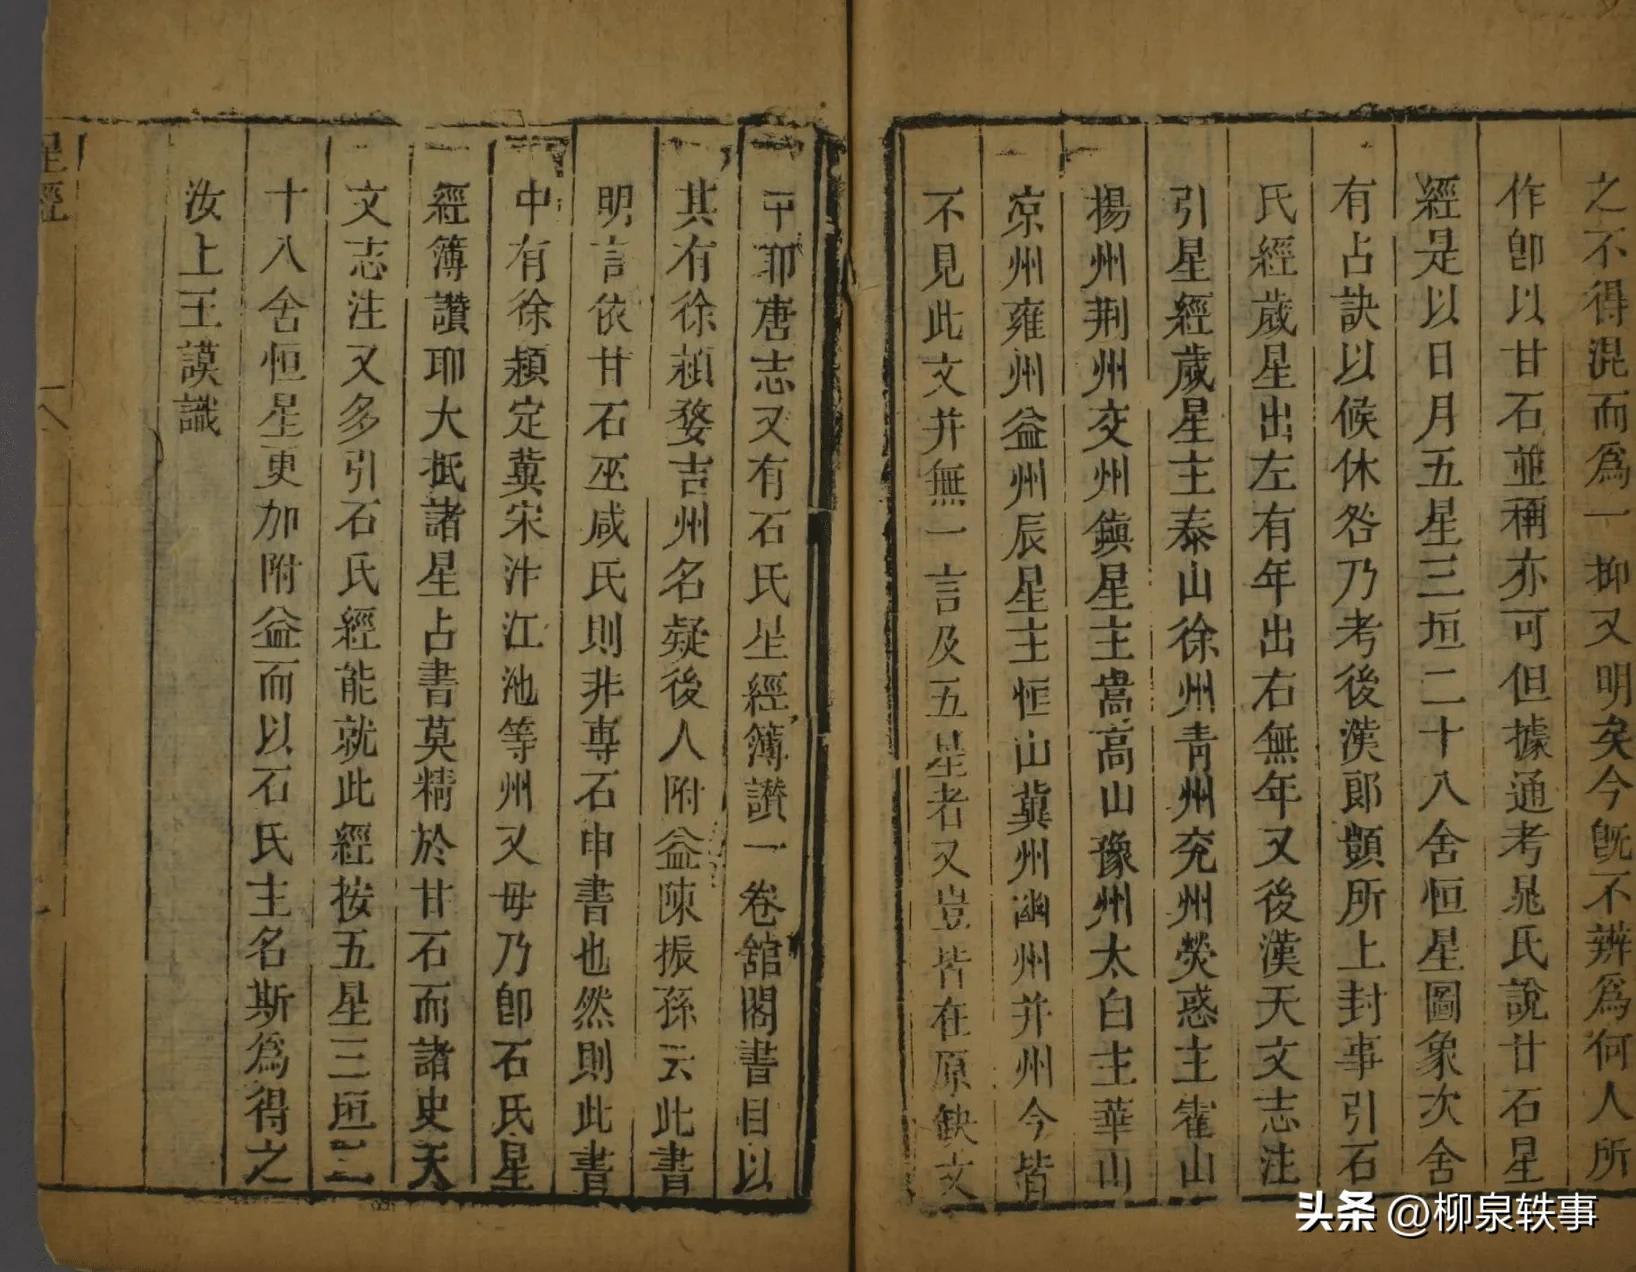 之不得混而爲一抑又明矣今旣不辨爲何人所
作卽以甘石並稱亦可但據通考晁氏說甘石星
經是以日月五星三垣二十八舍恒星圖象次舍
有占訣以候休咎乃考後漢郎顗所上封事引石
氏經歲星出左有年出右無年又後漢天文志注
引星經歲星主泰山徐州青州兖州熒惑主霍山
揚州荆州交州鎮星主嵩高山豫州太白主華山
凉州雍州益州辰星主恒山冀州幽州并州今皆
不見此文并無一言及五星者又豈皆在原缺文
中耶唐志又有石氏星經簿讃一卷舘閣書目以
其有徐潁婺吉州名疑後人附益陳振孫云此書
明言依甘石巫咸氏則非專石申書也然則此書
中有徐潁定冀宋汴江池等州又毋乃卽石氏星
經簿讃耶大抵諸星占書莫精於甘石而諸史天
文志注又多引石氏經能就此經按五星三垣二
十八舍恒星更加附益而以石氏主名斯爲得之
汝上王謨識
星經
十八
头条 @柳泉轶事